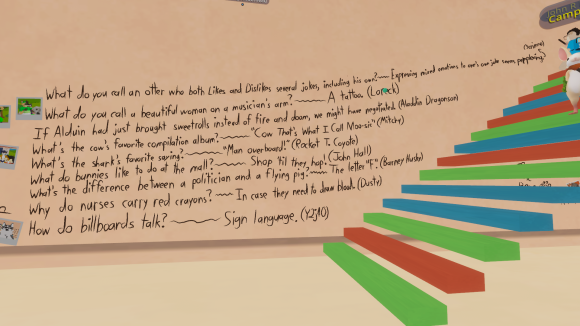 What do you call an otter who both Likes and Dislikes several jokes, including his own? Expressing mixed emotions to one's own joke seems perplexing?
What do you call a beautiful woman on a musician's arm? A tattoo. (Loreck)
If Alduin had just brought sweetrolls instead of fire and doom, we might have negotiated. (Aladdin Dragonson)
What's the cow's favorite compilation album? "Cow That's What I Call Moo-sic" (Mitchy)
What's the shark's favorite saying? "Man overboard!" (Pocket T. Coyote)
What do bunnies like to do at the mall? Shop 'til they hop! (John Hall)
What's the difference between a politician and a flying pig? The letter "F". (Barney Husky)
Why do nurses carry red crayons? In case they need to draw blood. (Dusty)
How do billboards talk? Sign language. (YQJ10)
Camp